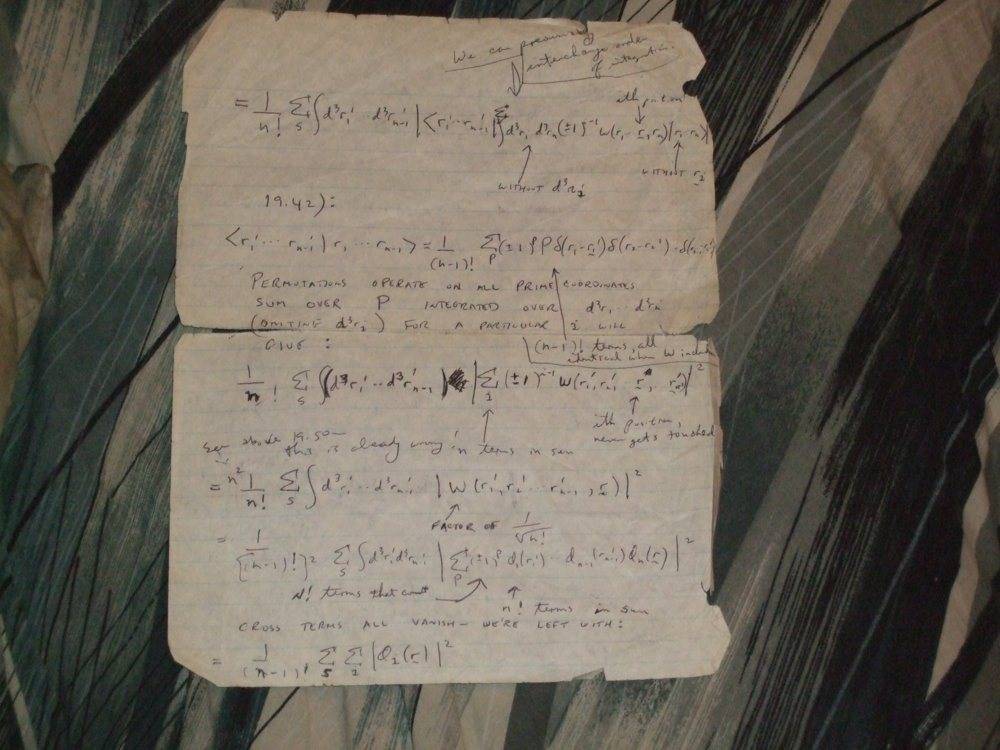 We can presumably
interchange order
of integration.
= 1/n! Σ_s ∫ d³r₁' ··· d³r'ₙ₋₁ |<r₁'···r'ₙ₋₁| Σ ∫ d³r₁ d³rₙ (±1)^(i-1) W(r₁ ·· r, rₙ)|r₁··rₙ>|
ith position
WITHOUT d³r_i
WITHOUT r_i
19.42):
<r₁' ··· r'ₙ₋₁ | r₁ ··· rₙ₋₁> = 1/(n-1)! Σ_P (±1)^P P δ(r₁-r₁') δ(r₂-r₂')··δ(
PERMUTATIONS OPERATE ON ALL PRIME COORDINATES
SUM OVER P INTEGRATED OVER d³r₁ ·· d³rₙ
(OMITTING d³r_i) FOR A PARTICULAR i WILL
GIVE :
(n-1)! terms, all
identical when W
1/n! Σ_s ∫ (d³r₁' ·· d³r'ₙ₋₁) |Σ_i (±1)^(i-1) W(r₁', r₂' r, rₙ)|²
ith position,
never gets touched
above 19.50—
this is already n terms in sum
= n² 1/n! Σ_s ∫ d³r₁' ·· d³r'ₙ₋₁ | W (r₁', r₂' ··· r'ₙ₋₁, r)|²
FACTOR OF 1/√n!
= 1/[(n-1)!]² Σ_s ∫ d³r₁' d³r'ₙ₋₁ | Σ_P (±1)^P φ₁(r₁') ·· φₙ₋₁(r'ₙ₋₁) φₙ(r) |²
n! terms that count
n! terms in sum
CROSS TERMS ALL VANISH — WE'RE LEFT WITH:
= 1/(n-1)! Σ_s Σ_i |φ_i(r)|²